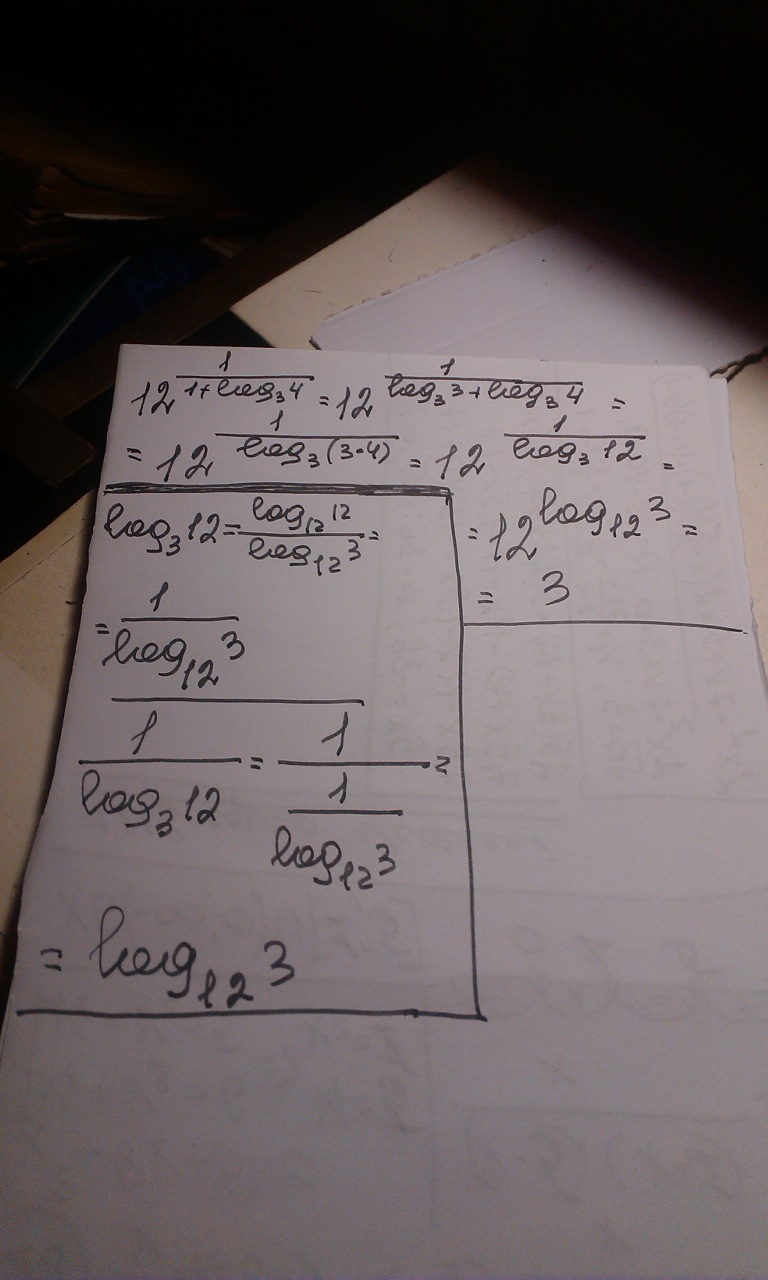 12^(1/(1+log₃4)) = 12^(1/(log₃3+log₃4)) =
= 12^(1/(log₃(3·4))) = 12^(1/(log₃12)) =
log₃12 = (log₁₂12)/(log₁₂3) =
= 12^(log₁₂3) =
= 3
= 1/(log₁₂3)
1/(log₃12) = 1/(1/(log₁₂3)) =
= log₁₂3